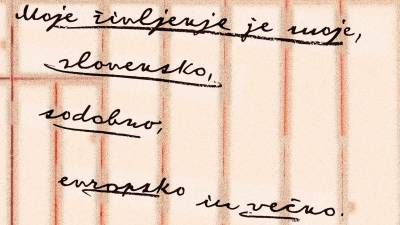 Moje življenje je moje,
slovensko,
sodobno,
evropsko in večno.